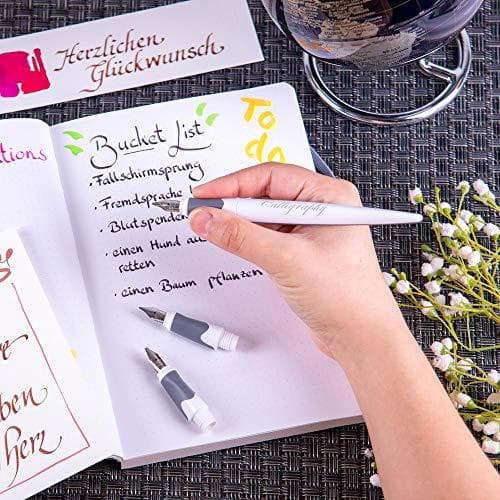 Herzlichen
Glückwunsch
ations
Bucket List
To
do
• Fallschirmsprung
• Fremdsprache
• Blutspender
• einen Hund a
retten
• einen Baum pflanzen
Calligraphy
re
ben
herz